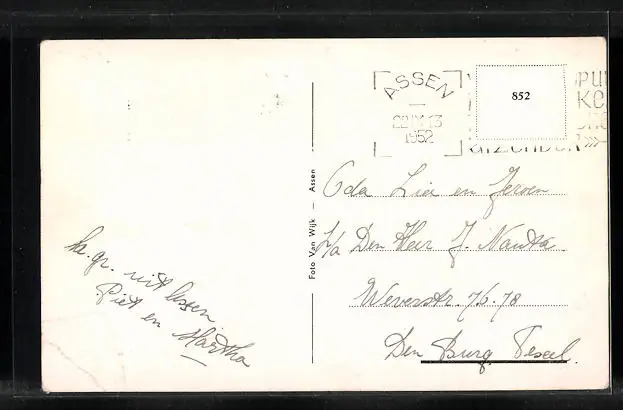 ASSEN
22.IX.13
1952
852
Foto Van Wijk — Assen
Oda Lia en Jeroen
p/a Den Heer J. Nauta
Weverstr. 76-78
Den Burg Texel.
ha. gr. uit Assen
Piet en Martha